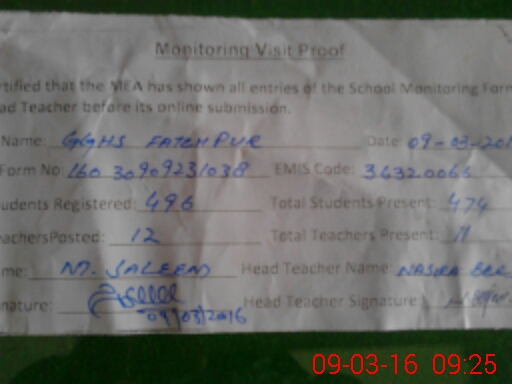 Monitoring Visit Proof
rtified that the MEA has shown all entries of the School Monitoring Form
ad Teacher before its online submission.
Name: GGHS FATEHPUR Date: 09-03-201
Form No: 160 30909231038 EMIS Code: 36320065
udents Registered: 496 Total Students Present: 474
eachersPosted: 12 Total Teachers Present: 11
me: M. SALEEM Head Teacher Name: NASIRA
nature: 09/03/2016 Head Teacher Signature:
09-03-16 09:25